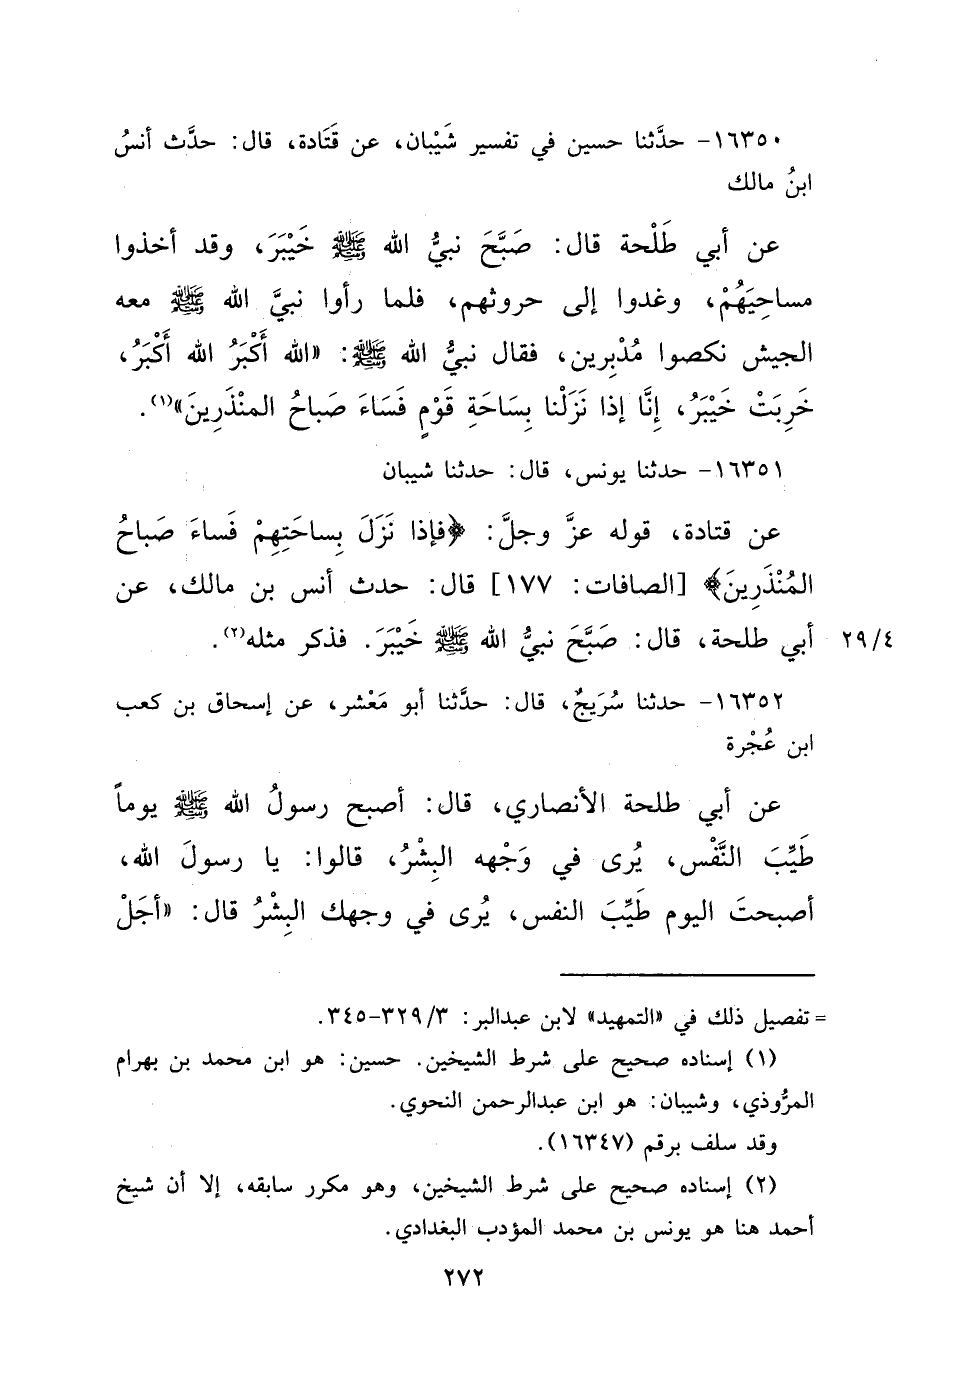 ١٦٣٥٠- حدَّثنا حسين في تفسير شَيْبان، عن قَتَادة، قال: حدَّث أنسُ
ابنُ مالك
عن أبي طَلْحة قال: صَبَّحَ نبيُّ الله ﷺ خَيْبَرَ، وقد أخذوا
مساحِيَهُمْ، وغدوا إلى حروثهم، فلما رأوا نبيَّ الله ﷺ معه
الجيش نكصوا مُدْبِرين، فقال نبيُّ الله ﷺ: «الله أَكْبَرُ الله أَكْبَرُ،
خَرِبَتْ خَيْبَرُ، إِنَّا إذا نَزَلْنا بِسَاحَةِ قَوْمٍ فَسَاءَ صَباحُ المنْذَرِينَ»(١).
١٦٣٥١- حدثنا يونس، قال: حدثنا شيبان
عن قتادة، قوله عزَّ وجلَّ: ﴿فإذا نَزَلَ بِساحَتِهِمْ فَساءَ صَباحُ
المُنْذَرِينَ﴾ [الصافات: ١٧٧] قال: حدث أنس بن مالك، عن
أبي طلحة، قال: صَبَّحَ نبيُّ الله ﷺ خَيْبَرَ. فذكر مثله(٢). ٢٩/٤
١٦٣٥٢- حدثنا سُرَيجٌ، قال: حدَّثنا أبو مَعْشر، عن إسحاق بن كعب
ابن عُجْرة
عن أبي طلحة الأنصاري، قال: أصبح رسولُ الله ﷺ يوماً
طَيِّبَ النَّفْس، يُرى في وَجْهه البِشْرُ، قالوا: يا رسولَ الله،
أصبحتَ اليوم طَيِّبَ النفس، يُرى في وجهك البِشْرُ قال: «أجَلْ
= تفصيل ذلك في «التمهيد» لابن عبدالبر: ٣٢٩/٣-٣٤٥.
(١) إسناده صحيح على شرط الشيخين. حسين: هو ابن محمد بن بهرام
المرُّوذي، وشيبان: هو ابن عبدالرحمن النحوي.
وقد سلف برقم (١٦٣٤٧).
(٢) إسناده صحيح على شرط الشيخين، وهو مكرر سابقه، إلا أن شيخ
أحمد هنا هو يونس بن محمد المؤدب البغدادي.
٢٧٢